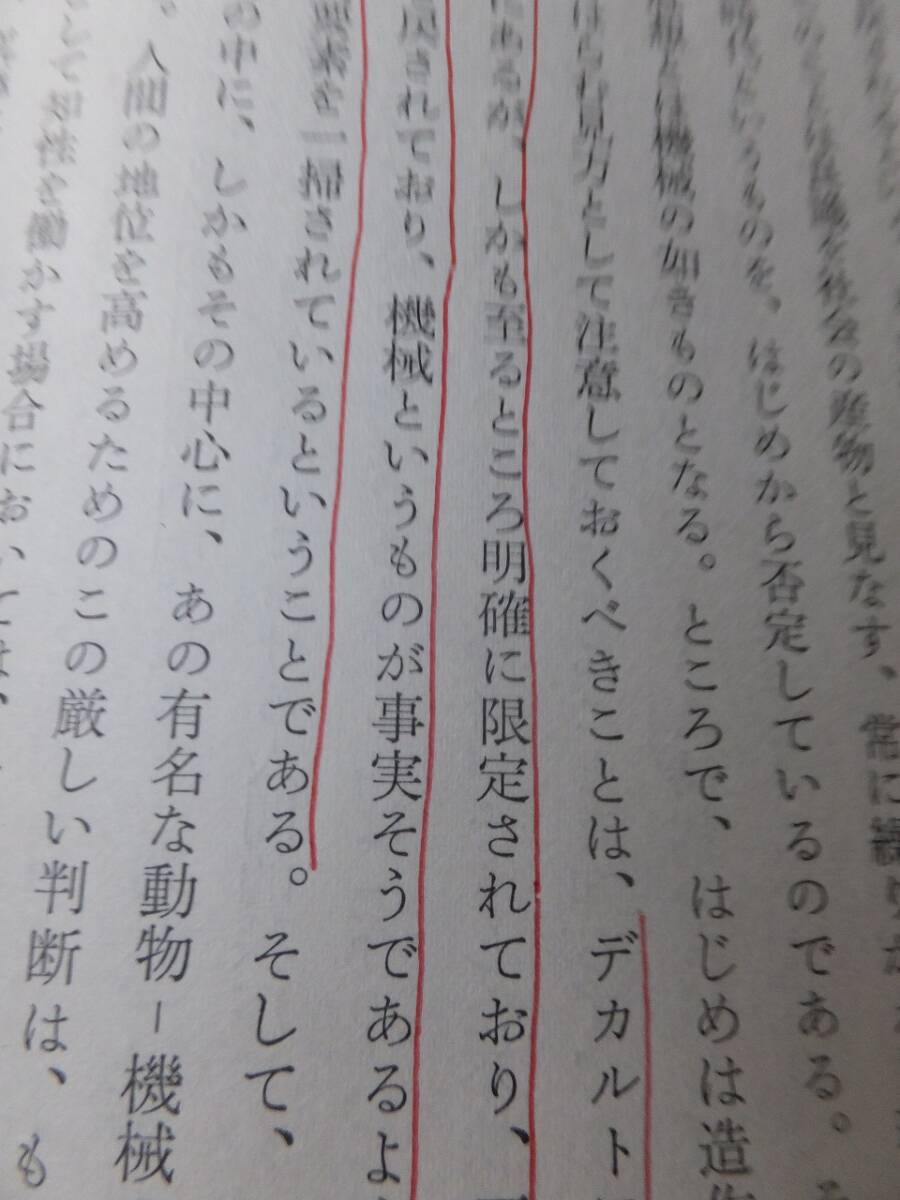 産物と見なす、常に繰り
というものを、はじめから否定しているのである。
は機械の如きものとなる。ところで、はじめは造
として注意しておくべきことは、デカルト
にあるが、しかも至るところ明確に限定されており、
戻されており、機械というものが事実そうであるよ
を一掃されているということである。そして、
の中に、しかもその中心に、あの有名な動物-機械
人間の地位を高めるためのこの厳しい判断は、も
して知性を働かす場合においては、